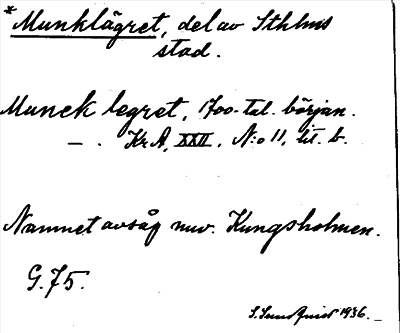 *Munklägret, del av Sthlms
stad.
Munck legret, 1700-tal. början.
— . Kr A, XXII, N:o 11, lit. b.
Namnet avsåg nuv. Kungsholmen.
G. 75.
S. Sundquist 1936.